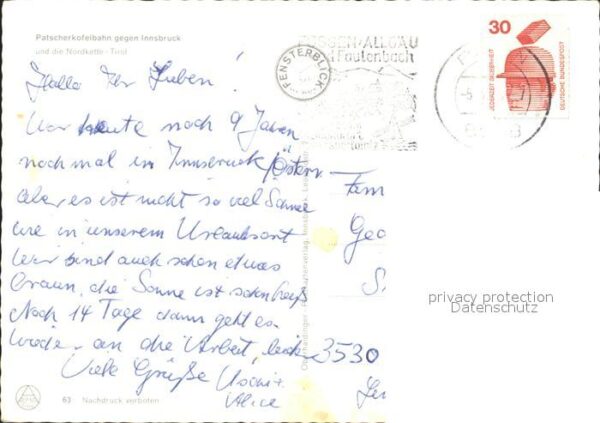 Patscherkofelbahn gegen Innsbruck
und die Nordkette - Tirol
Hallo Ihr Lieben!
War heute nach 9 Jahren
nochmal in Innsbruck/Östern
Aber es ist nicht so viel Sonne
wie in unserem Urlaubsort
Wir sind auch schon etwas
braun, die Sonne ist sehr heiß
Noch 14 Tage dann geht es
wieder an die Arbeit,
Viele Grüße Uschi +
Alice
63 Nachdruck verboten
FENSTERBLICK
ALLGÄU
30
JEDERZEIT SICHERHEIT
DEUTSCHE BUNDESPOST
Fam
Geo
3530
privacy protection
Datenschutz